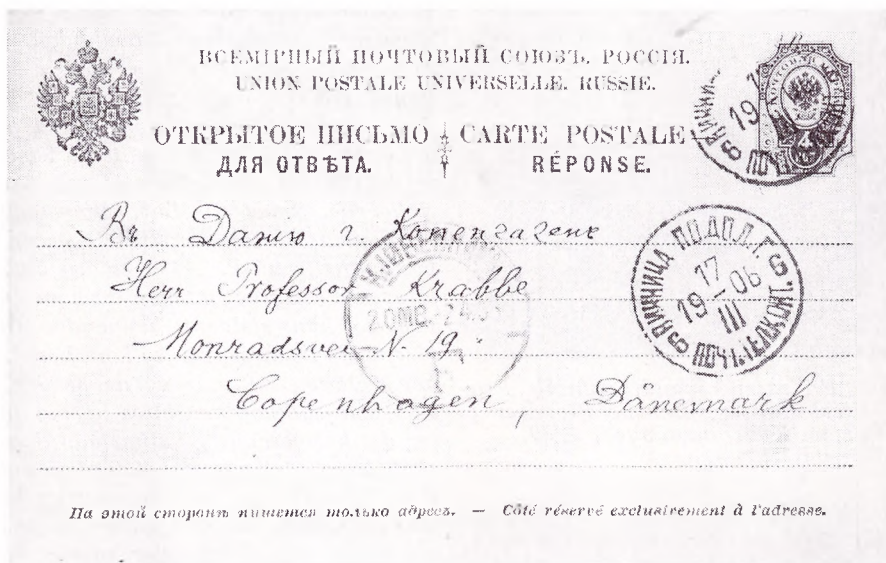 ВСЕМІРНЫЙ ПОЧТОВЫЙ СОЮЗЪ. РОССІЯ.
UNION POSTALE UNIVERSELLE. RUSSIE.
ОТКРЫТОЕ ПИСЬМО CARTE POSTALE
ДЛЯ ОТВѢТА. RÉPONSE.
Въ Данію г. Копенгагенъ
Herr Professor Krabbe
Monradsvei N. 19.
Copenhagen, Dänemark
6 ВИННИЦА ПОДОЛ. Г. 6
17
19-06
III
ПОЧТ. ТЕЛ. КОНТ.
На этой сторонѣ пишется только адресъ. — Côté réservé exclusivement à l'adresse.